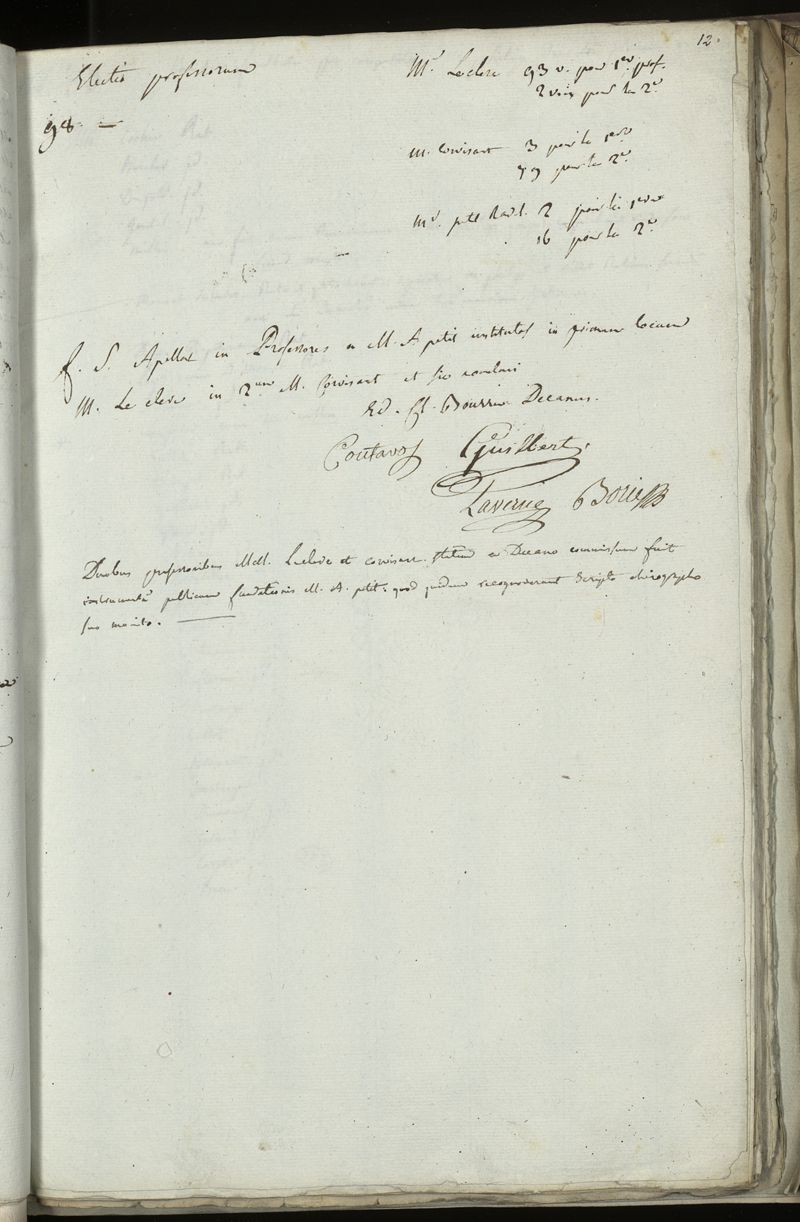 12.
Electio professorum
98 —
Mr. Leclerc 93 v. pour 1er prof.
2 voix pour le 2e
M. Corvisart 3 pour le 1er
79 pour le 2e
Mr. petit Rad. 2 pour le 1er
16 pour le 2e
f. S. Apellat in Professores a M. A petit institutos in primum locum
M. Le clerc in 2um M. Corvisart et sic conclusi
Ed. Cl. Bourru Decanus.
Coutavoz Guilbert
Laverne Borie
Duobus professoribus MM. Leclerc et corvisart statim a Decano commissum fuit
instrumentũ publicum fundationis M. A. petit: quod quidem recognoverunt scripto chirographo
suo munito.